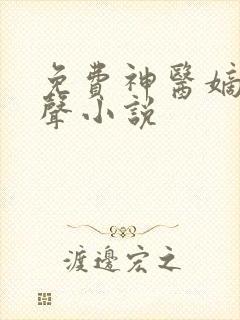 免費神醫嫡
聲小說
渡邊宏之